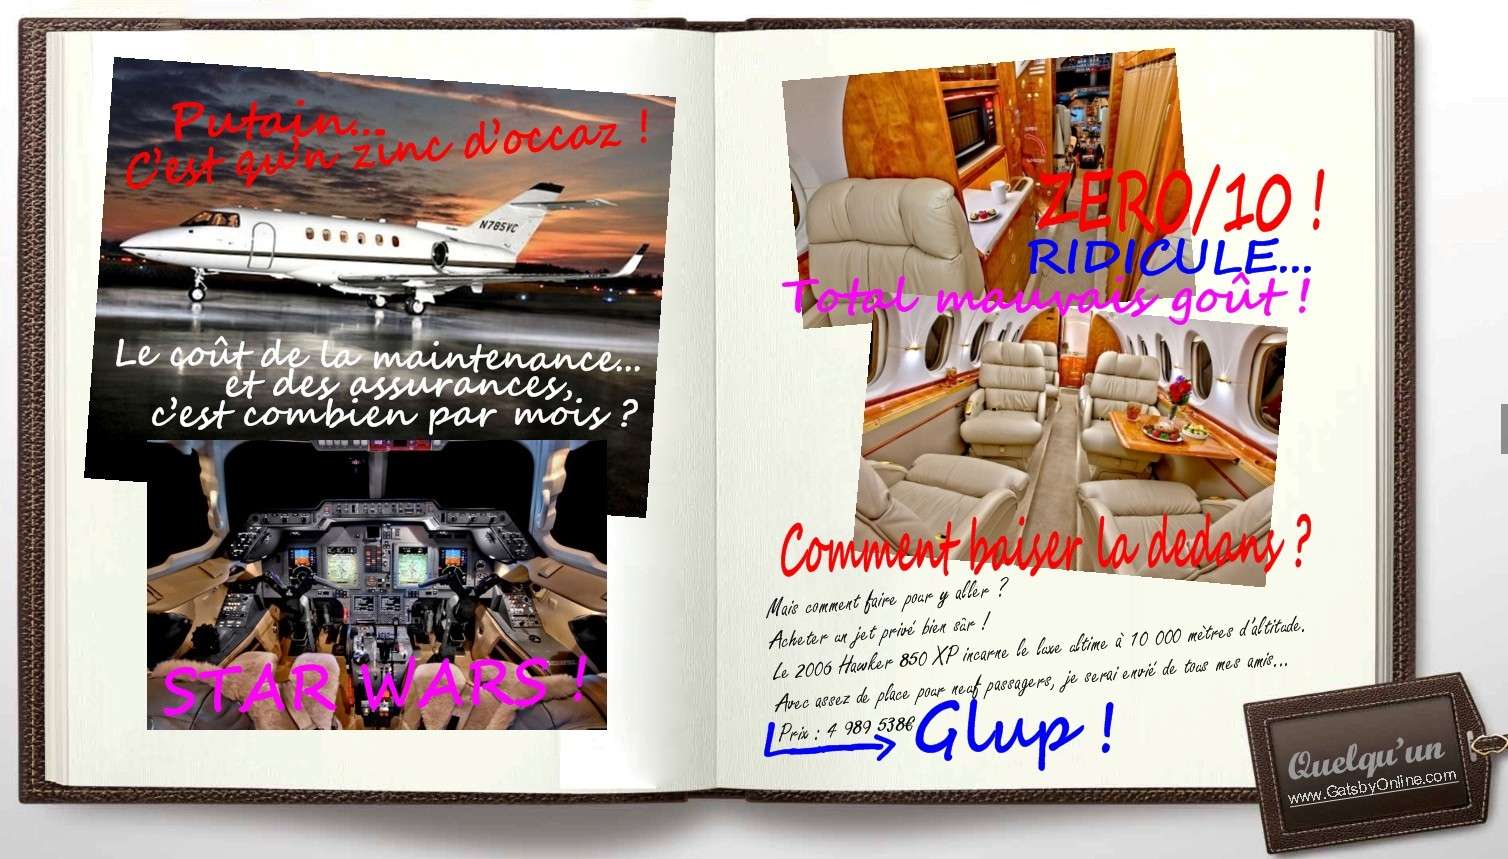 Putain...
C'est qu'n zinc d'occaz !
N785VC
Le coût de la maintenance...
et des assurances,
c'est combien par mois ?
STAR WARS !
ZERO/10 !
RIDICULE...
Total mauvais goût !
Comment baiser la dedans ?
Mais comment faire pour y aller ?
Acheter un jet privé bien sûr !
Le 2006 Hawker 850 XP incarne le luxe ultime à 10 000 mètres d'altitude.
Avec assez de place pour neuf passagers, je serai envié de tous mes amis...
Prix : 4 989 538€
Glup !
Quelqu'un !
www.GatsbyOnline.com